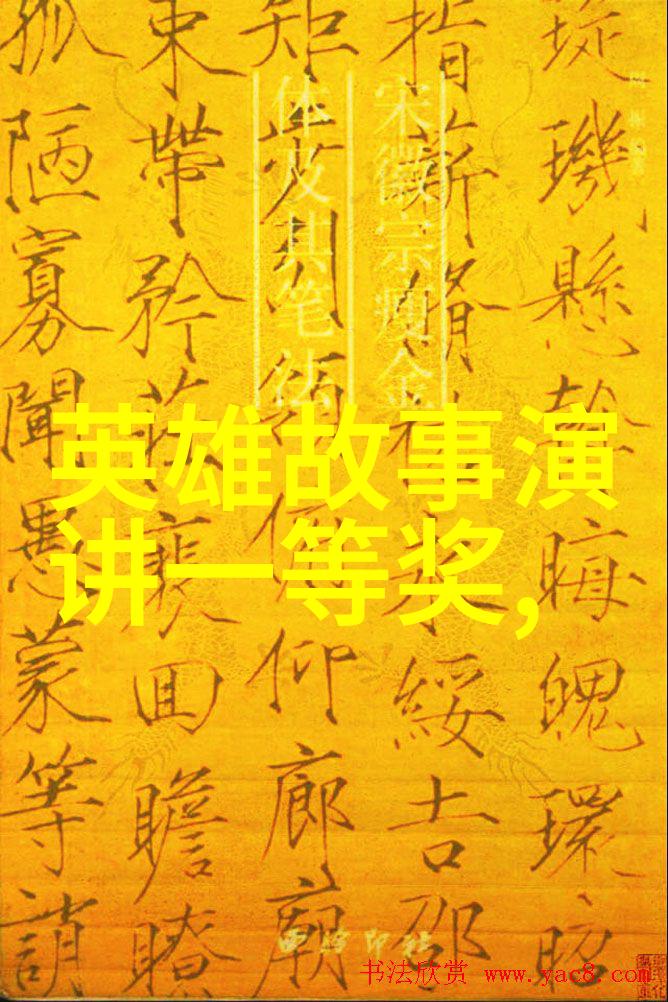 宋徽宗瘦金
体及其笔法
璇璣懸斡晦魄環照
指薪脩祜永綏吉劭
矩步引領俯仰廊廟
束帶矜莊裵回瞻眺
孤陋寡聞愚蒙等誚
英雄故事演
讲一等奖,
西泠印社
书法欣赏 www.yac8.com